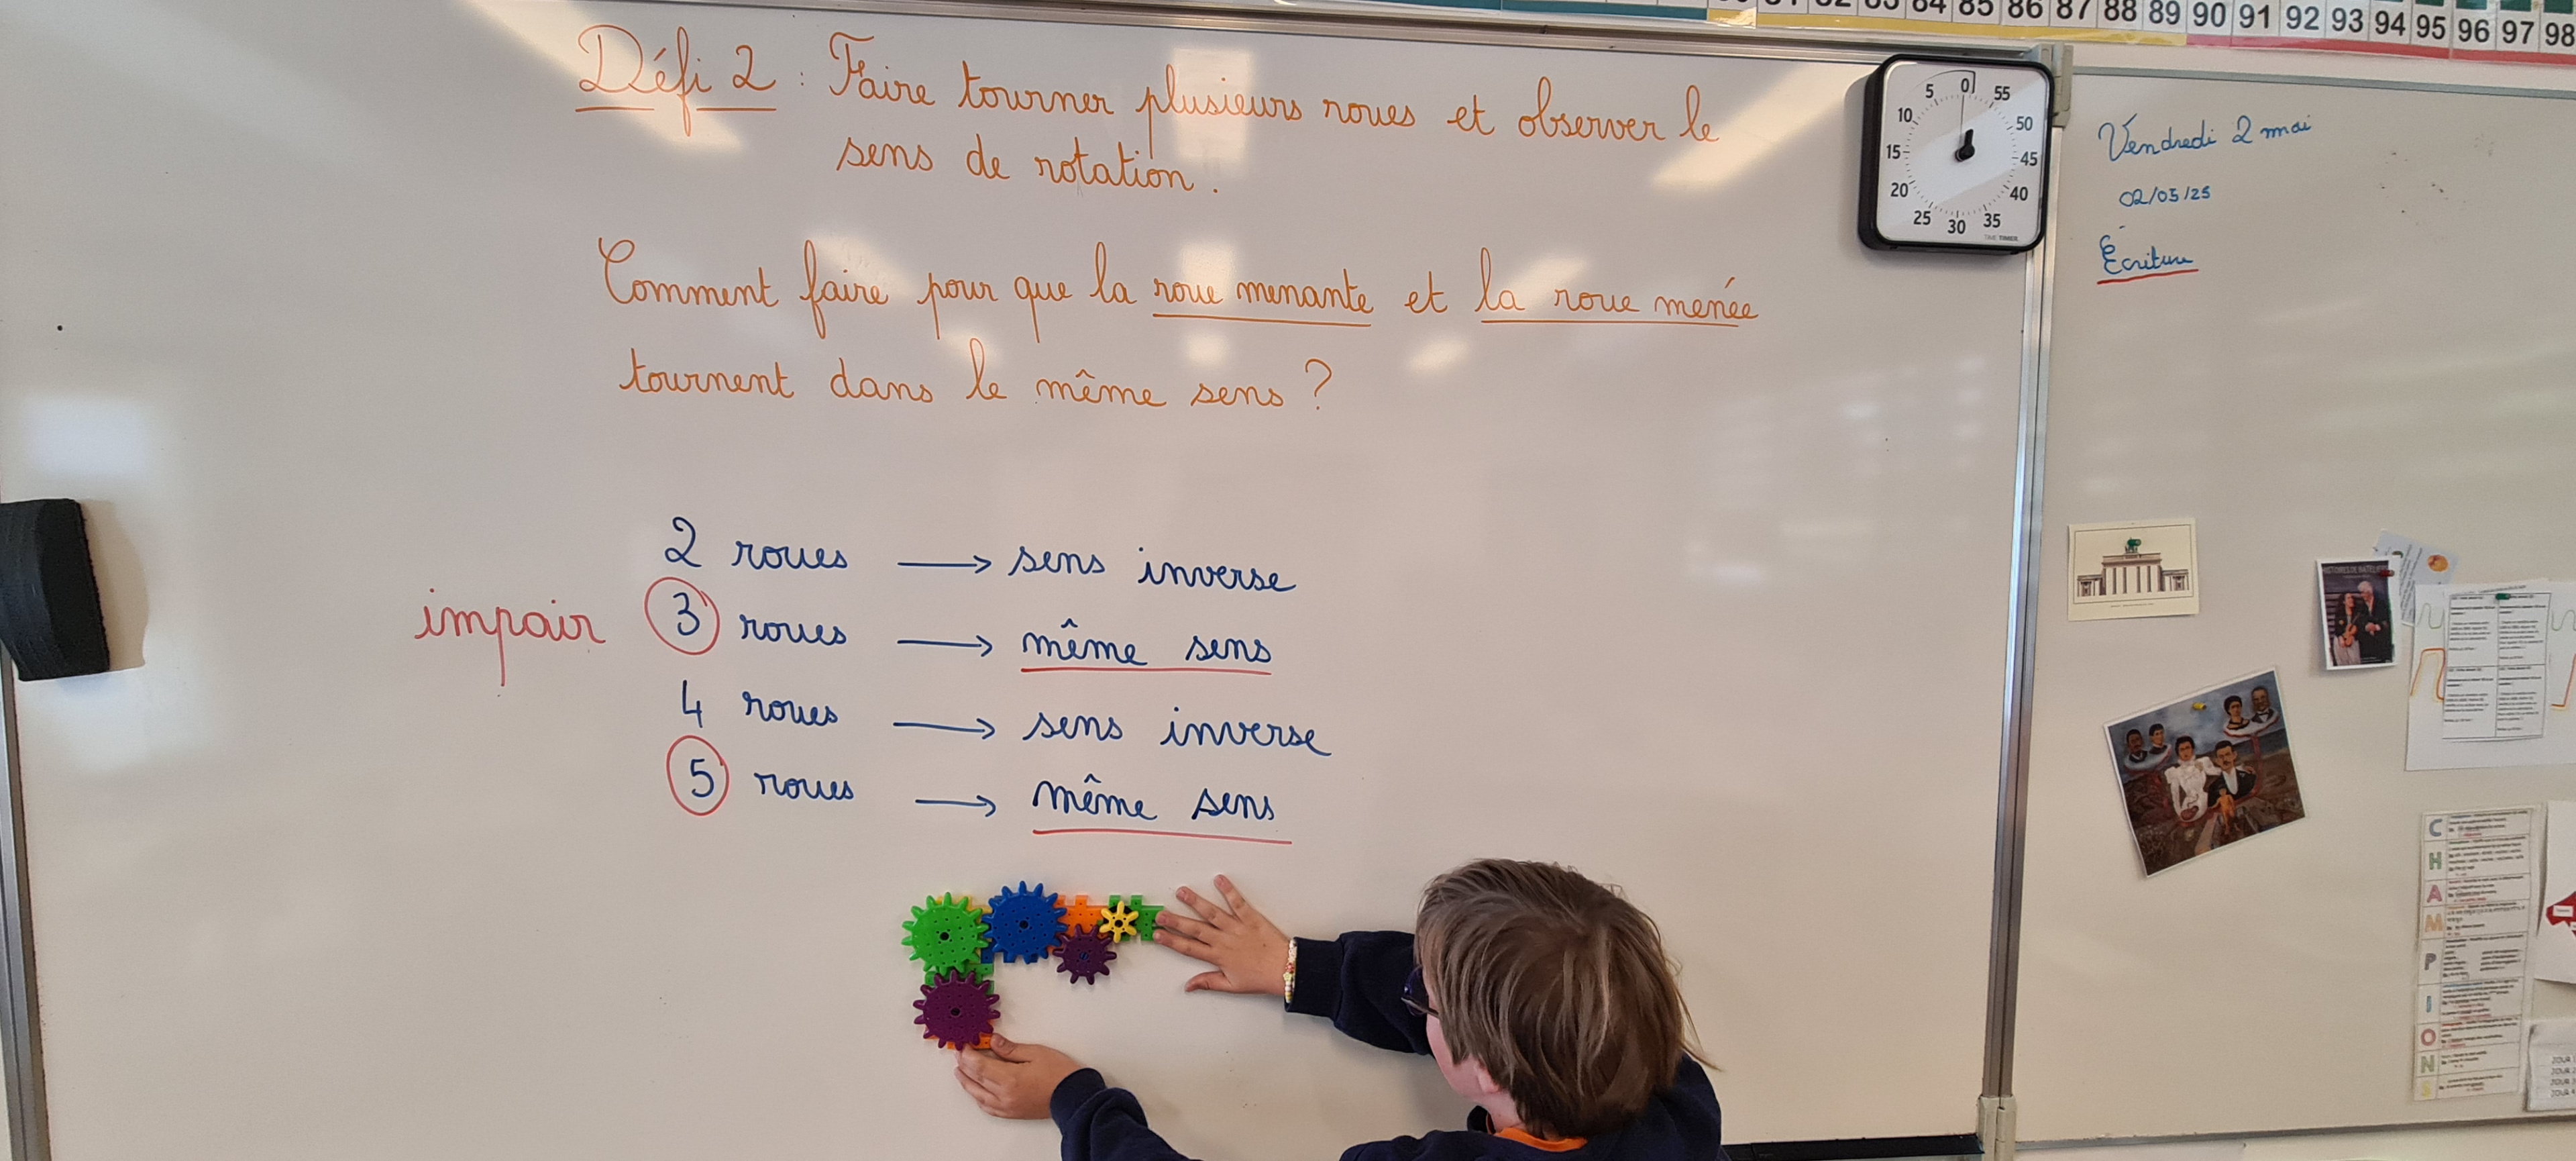 84 85 86 87 88 89 90 91 92 93 94 95 96 97 98
Défi 2 : Faire tourner plusieurs roues et observer le
sens de rotation.
Comment faire pour que la roue menante et la roue menée
tournent dans le même sens ?
2 roues → sens inverse
impair 3 roues → même sens
4 roues → sens inverse
5 roues → même sens
0 55 50 45 40 35 30 25 20 15 10 5
TIME TIMER
Vendredi 2 mai
02/05/25
Écriture
C
H
A
M
P
I
O
N
S